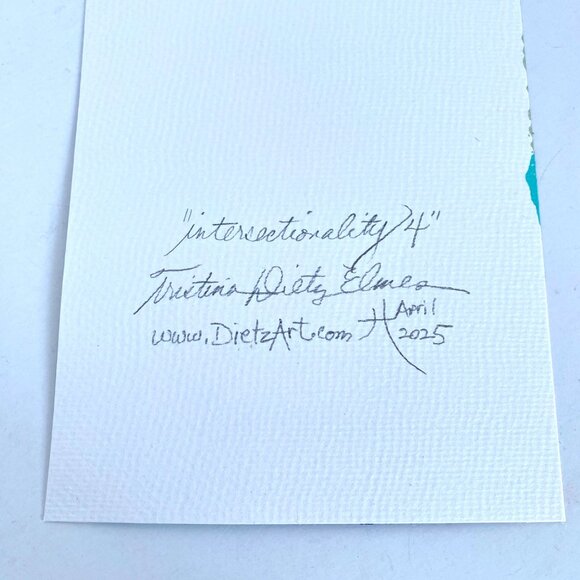 "intersectionality 4"
Tristina Dietz Elmes
www.DietzArt.com April
2025